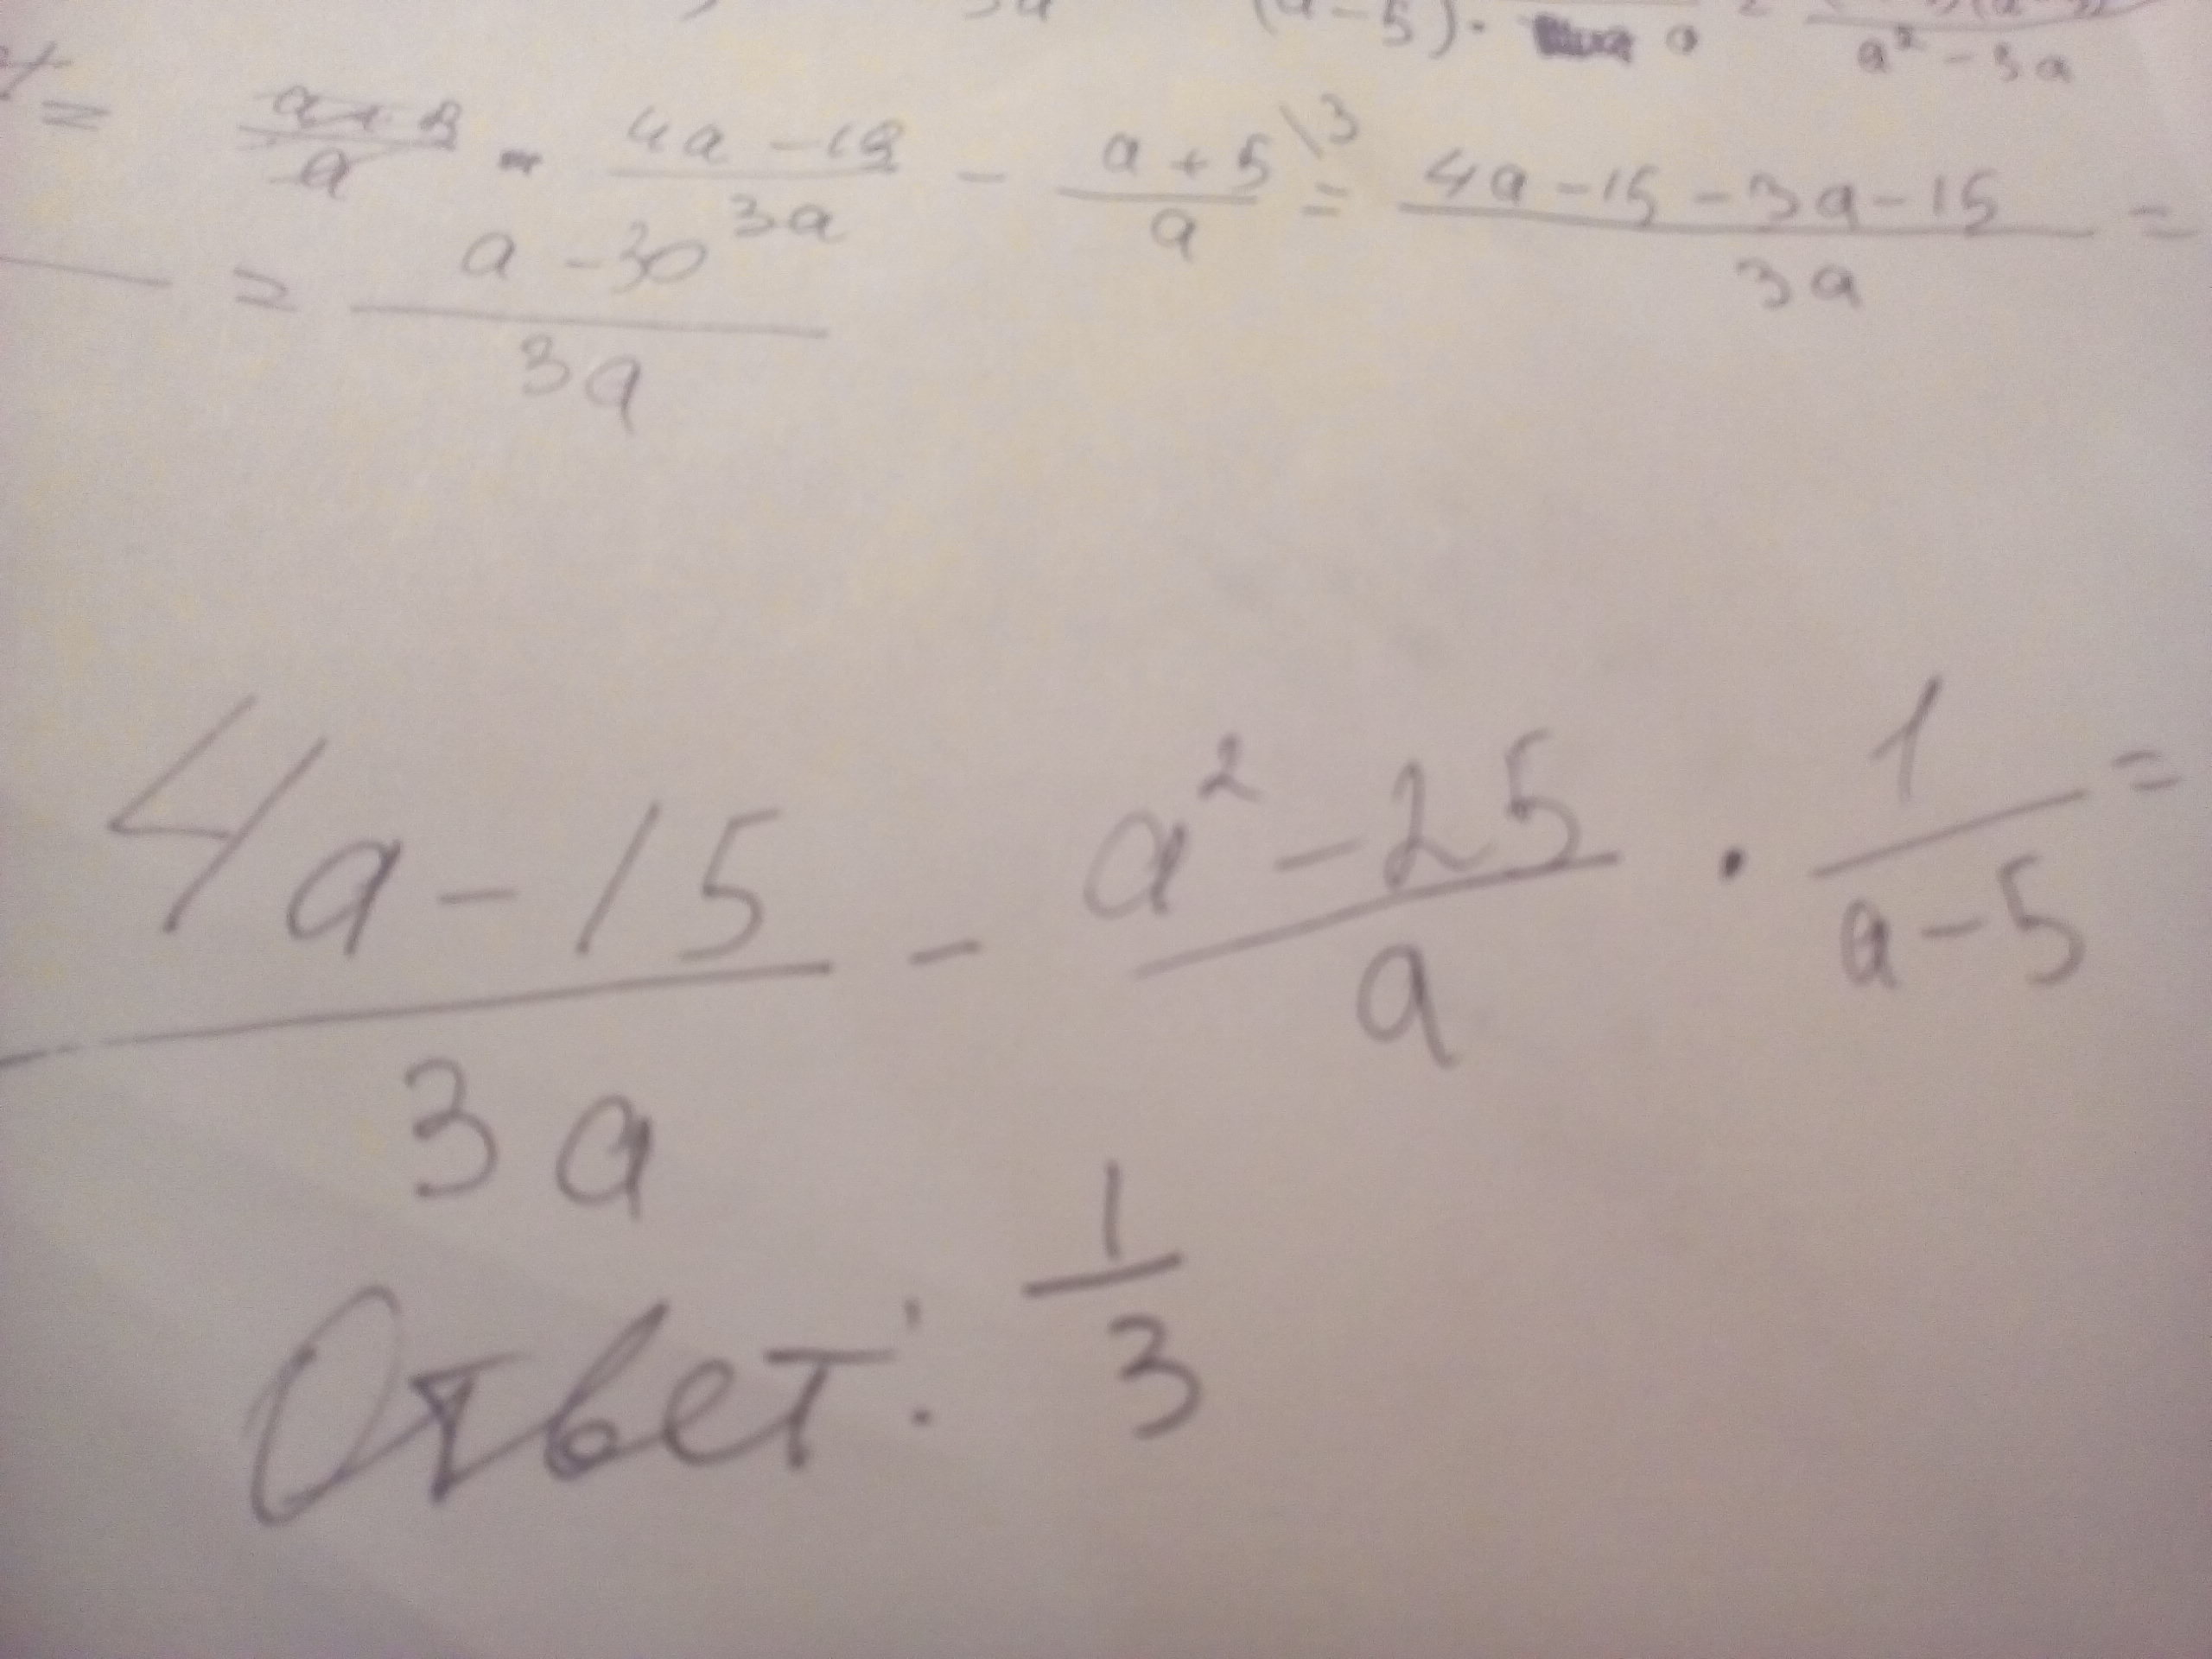 (a-5)·
a² - 3a
= a+3/a - 4a-15/3a - a+5\3/a = 4a-15-3a-15/3a =
= a-30/3a
4a-15/3a - a²-25/a · 1/a-5 =
Ответ: 1/3